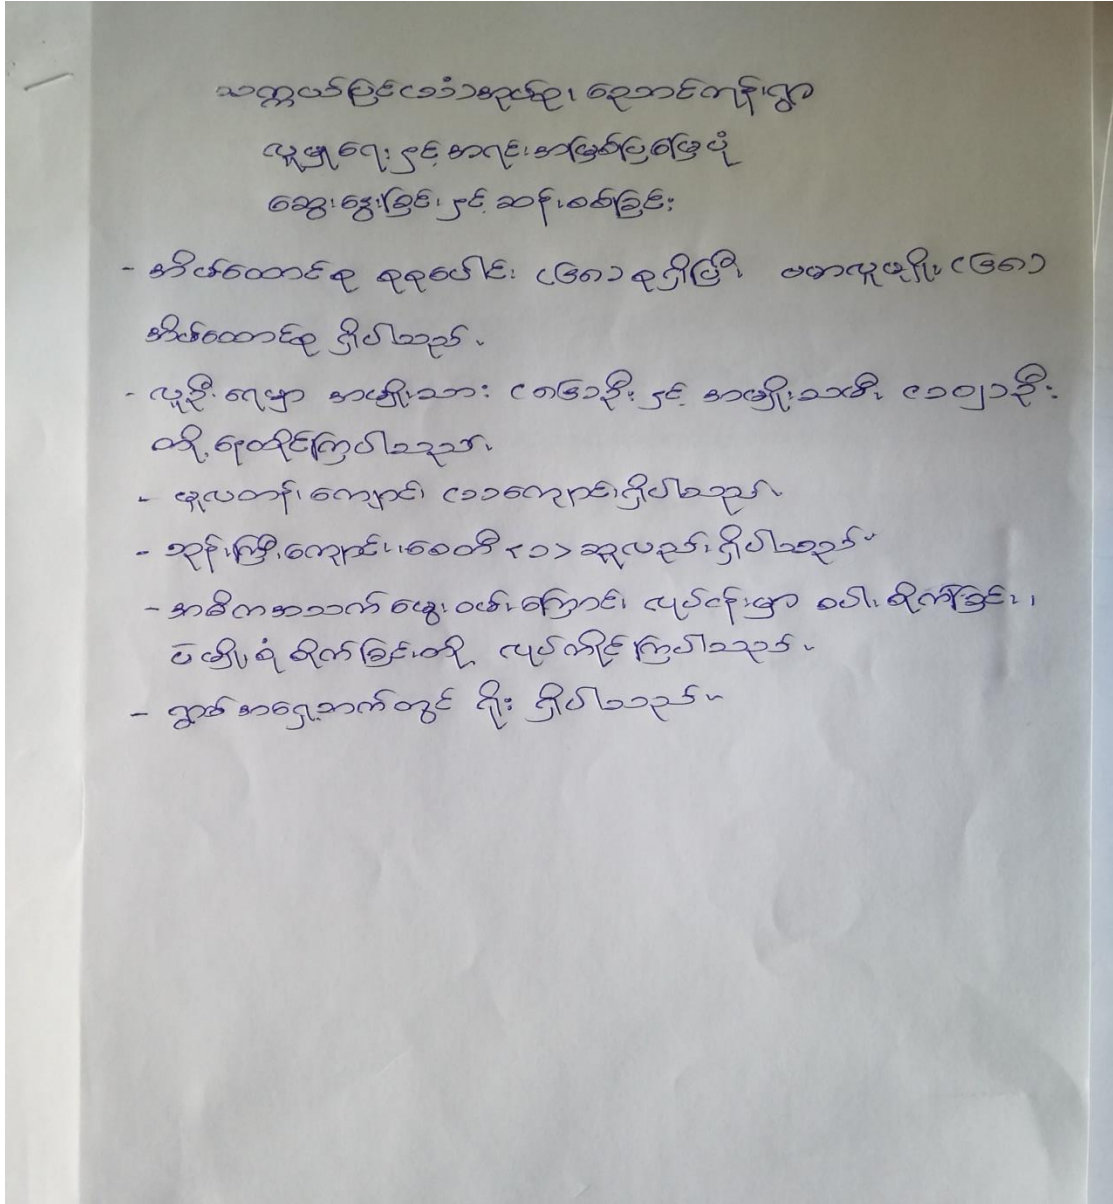 သက္ကယ်ပြင်(၁၁)အုပ်စု၊ ညောင်ကုန်းရွာ
လူမှုရေးနှင့် အရင်းအမြစ်ပြမြေပုံ
ဆွေးနွေးခြင်းနှင့် ဆန်းစစ်ခြင်း
- အိမ်ထောင်စု စုစုပေါင်း (၆၈)စုရှိပြီး ဗမာလူမျိုး (၆၈)
အိမ်ထောင်စု ရှိပါသည်။
- လူဦးရေမှာ အမျိုးသား (၈၆)ဦးနှင့် အမျိုးသမီး (၁၀၂)ဦး
တို့ နေထိုင်ကြပါသည်။
- မူလတန်းကျောင်း (၁)ကျောင်းရှိပါသည်။
- ဘုန်းကြီးကျောင်း၊ စေတီ <၁> ဆူလည်းရှိပါသည်။
- အဓိကအသက်မွေးဝမ်းကြောင်း လုပ်ငန်းမှာ စပါးစိုက်ခြင်း၊
ပဲမျိုးစုံစိုက်ခြင်းတို့ လုပ်ကိုင်ကြပါသည်။
- ရွာ၏အရှေ့ဘက်တွင် ရိုး ရှိပါသည်။